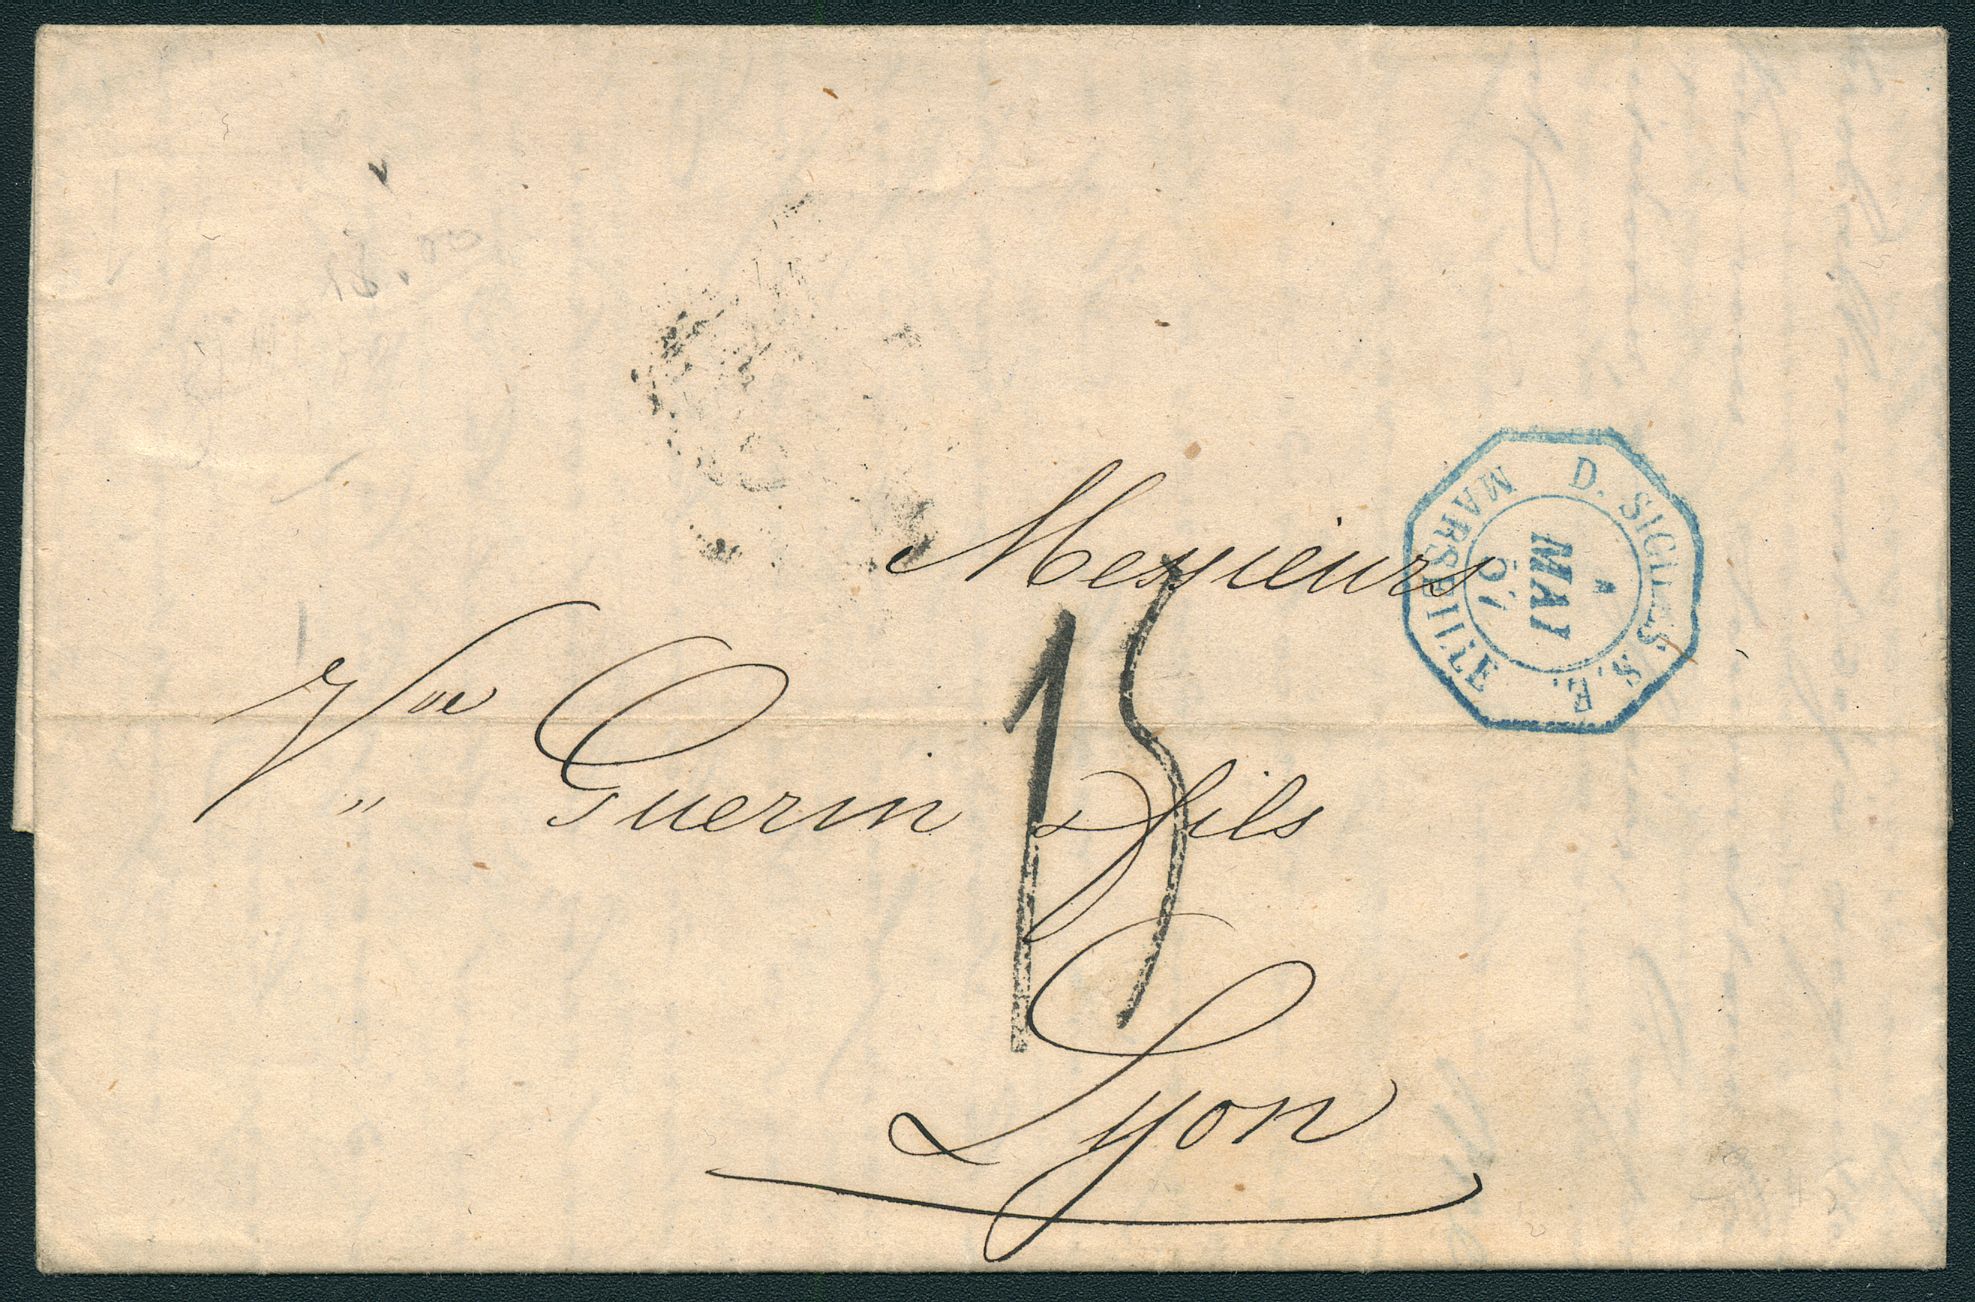 Messieurs
Vve Guerin & fils
15
Lyon
D. SICILES. S. E.
MARSEILLE
MAI